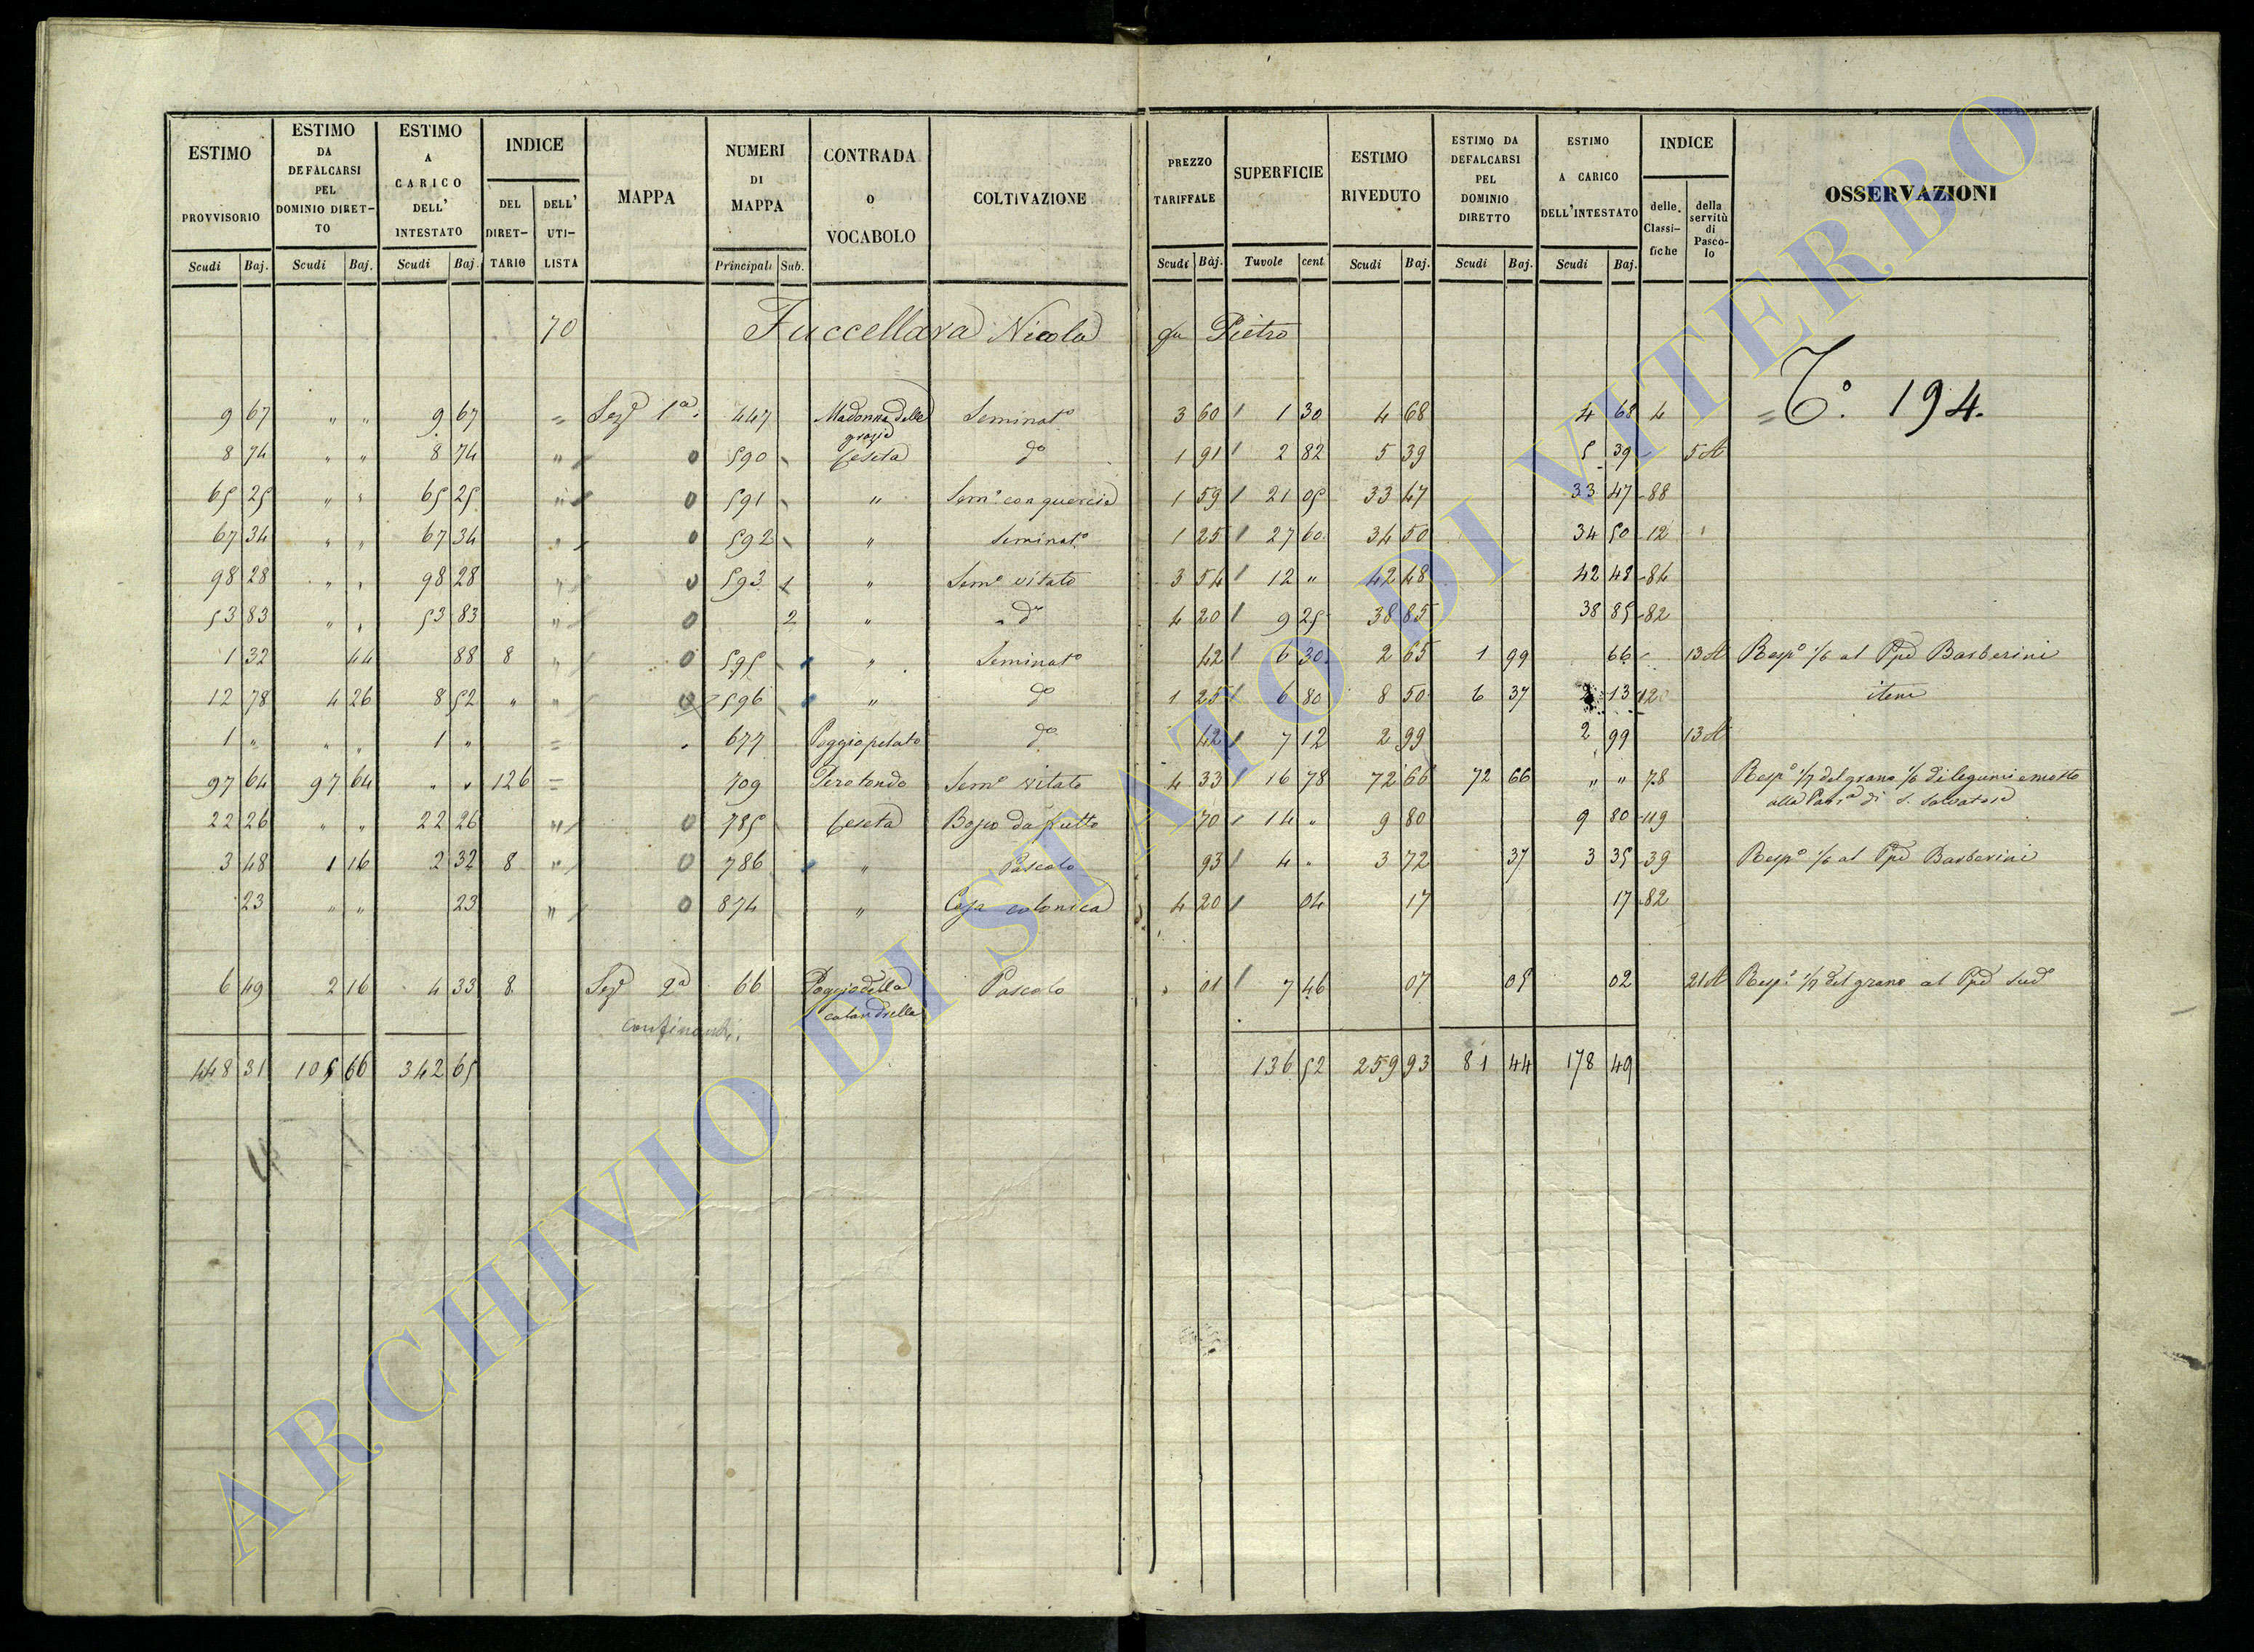 ESTIMO PROVVISORIO Scudi Baj.
ESTIMO DA DEFALCARSI PEL DOMINIO DIRET-TO Scudi Baj.
ESTIMO A CARICO DELL' INTESTATO Scudi Baj.
INDICE DEL DIRET-TARIO DELL' UTI-LISTA
MAPPA
NUMERI DI MAPPA Principali Sub.
CONTRADA O VOCABOLO
COLTIVAZIONE
PREZZO TARIFFALE Scudi Baj.
SUPERFICIE Tavole cent
ESTIMO RIVEDUTO Scudi Baj.
ESTIMO DA DEFALCARSI PEL DOMINIO DIRETTO Scudi Baj.
ESTIMO A CARICO DELL'INTESTATO Scudi Baj.
INDICE delle Classi-fiche della servitù di Pasco-lo
OSSERVAZIONI
70 Fuccellara Nicola fu Pietro
9 67 " " 9 67 = Sezе 1a. 447 Madonna delle grazie Seminato 3 60 1 30 4 68 4 68 4 = To. 194.
8 74 " " 8 74 " 0 590 Ceseta do 1 91 2 82 5 39 5 39 5 A
65 25 " " 65 25 " 0 591 " Semo con quercie 1 59 21 05 33 47 33 47 88
67 34 " " 67 34 " 0 592 " Seminato 1 25 27 60 34 50 34 50 12
98 28 " " 98 28 " 0 593 1 " Semo vitato 3 54 12 " 42 48 42 48 84
53 83 " " 53 83 " 0 2 " do 4 20 9 25 38 85 38 85 82
1 32 44 88 8 " 0 595 " Seminato 42 6 30 2 65 1 99 66 13 A Respo 1/6 al Ppe Barberini
12 78 4 26 8 52 " " 0 596 " do 1 25 6 80 8 50 6 37 2 13 12 item
1 " " " 1 " = 677 Poggio pelato do 42 7 12 2 99 2 99 13 A
97 64 97 64 " " 126 = 709 Perotondo Semo vitato 4 33 16 78 72 66 72 66 " " 78 Respo 1/7 del grano 1/6 di legumi e mosto
alla di S. Salvatore
22 26 " " 22 26 " 0 785 Ceseta Bosco da frutto 70 14 " 9 80 9 80 119
3 48 1 16 2 32 8 " 0 786 " Pascolo 93 4 " 3 72 37 3 35 39 Respo 1/6 al Ppe Barberini
23 " " 23 " 0 874 " Casa colonica 4 20 04 17 17 82
6 49 2 16 4 33 8 Seze 2a 66 Poggio della calandrella Pascolo " 01 7 46 07 05 02 21 A Respo 1/7 del grano al Ppe Sudo
confinandi.
448 31 105 66 342 65 136 52 259 93 81 44 178 49
ARCHIVIO DI STATO DI VITERBO